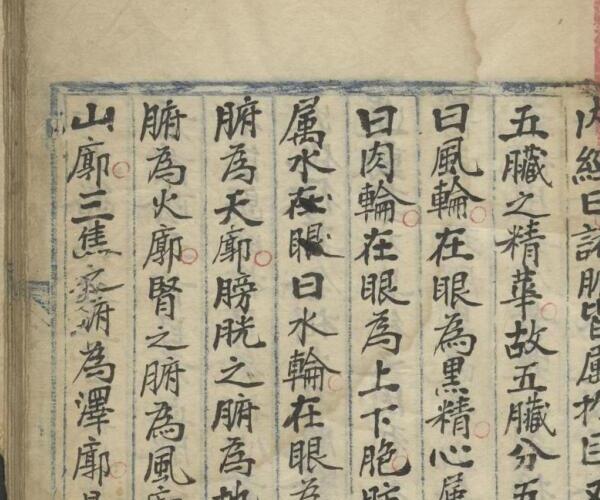 内經曰諸脈皆属於目
五臟之精華故五臟分五
曰風輪在眼為黒精心属
曰肉輪在眼為上下胞肪
属水在眼曰水輪在眼為
腑為天廓膀胱之腑為地
腑為火廓腎之腑為風廓
山廓三焦之腑為澤廓